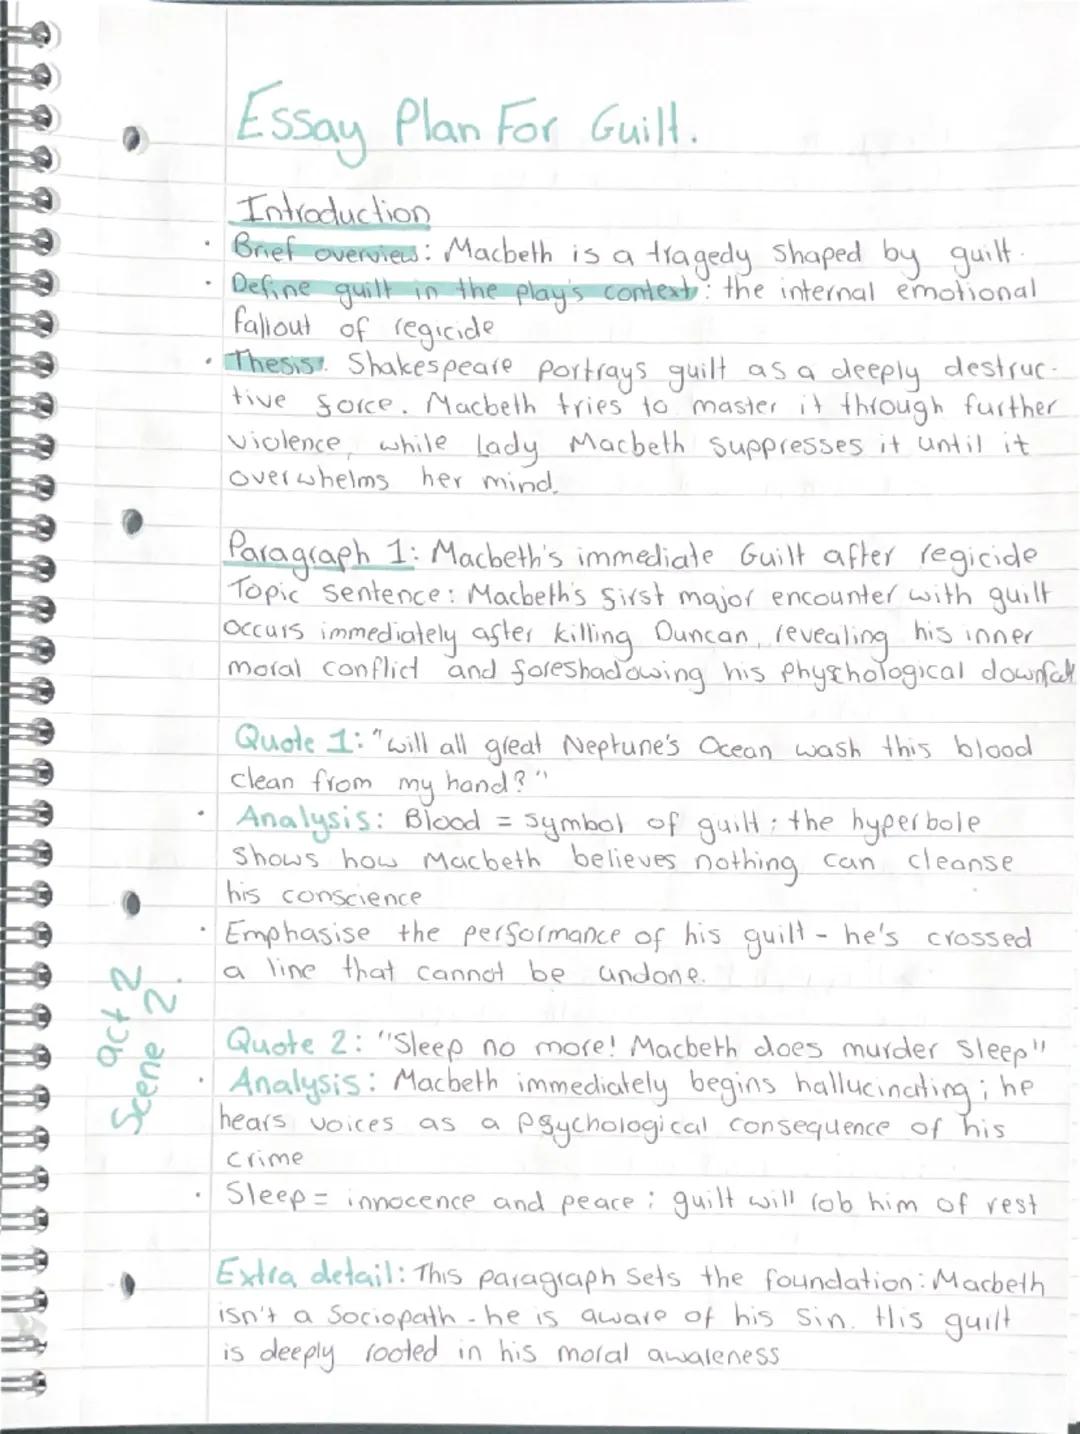 Essay Plan For Guilt.
Introduction
· Brief overview: Macbeth is a tragedy shaped by guilt.
· Define guilt in the play's context: the internal emotional
fallout of regicide
· Thesis: Shakespeare portrays guilt as a deeply destruc-
tive force. Macbeth tries to master it through further
violence, while Lady Macbeth suppresses it until it
overwhelms her mind.
Paragraph 1: Macbeth's immediate Guilt after regicide
Topic sentence: Macbeth's first major encounter with guilt
occurs immediately after killing Duncan, revealing his inner
moral conflict and foreshadowing his physchological downfall
Quote 1: "will all great Neptune's Ocean wash this blood
clean from my hand?"
· Analysis: Blood = symbol of guilt; the hyperbole
shows how Macbeth believes nothing can cleanse
his conscience
· Emphasise the performance of his guilt - he's crossed
a line that cannot be undone.
act 2
Scene 2.
Quote 2: "Sleep no more! Macbeth does murder sleep"
· Analysis: Macbeth immediately begins hallucinating; he
hears voices as a psychological consequence of his
crime
· Sleep = innocence and peace; guilt will rob him of rest
Extra detail: This paragraph sets the foundation: Macbeth
isn't a sociopath - he is aware of his sin. His guilt
is deeply rooted in his moral awareness